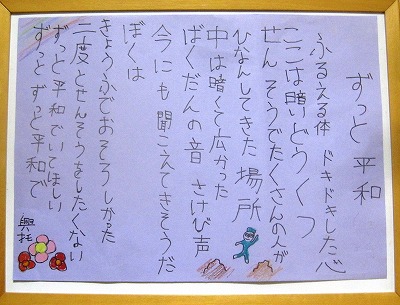 ずっと 平和
ふるえる体 ドキドキした心
ここは暗いどうくつ
せんそうでたくさんの人が
ひなんしてきた場所
中は暗くて広かった
ばくだんの音 さけび声
今にも聞こえてきそうだ
ぼくは
きょうふでおそろしかった
二度とせんそうをしたくない
ずっと平和でいてほしい
ずっと ずっと平和で